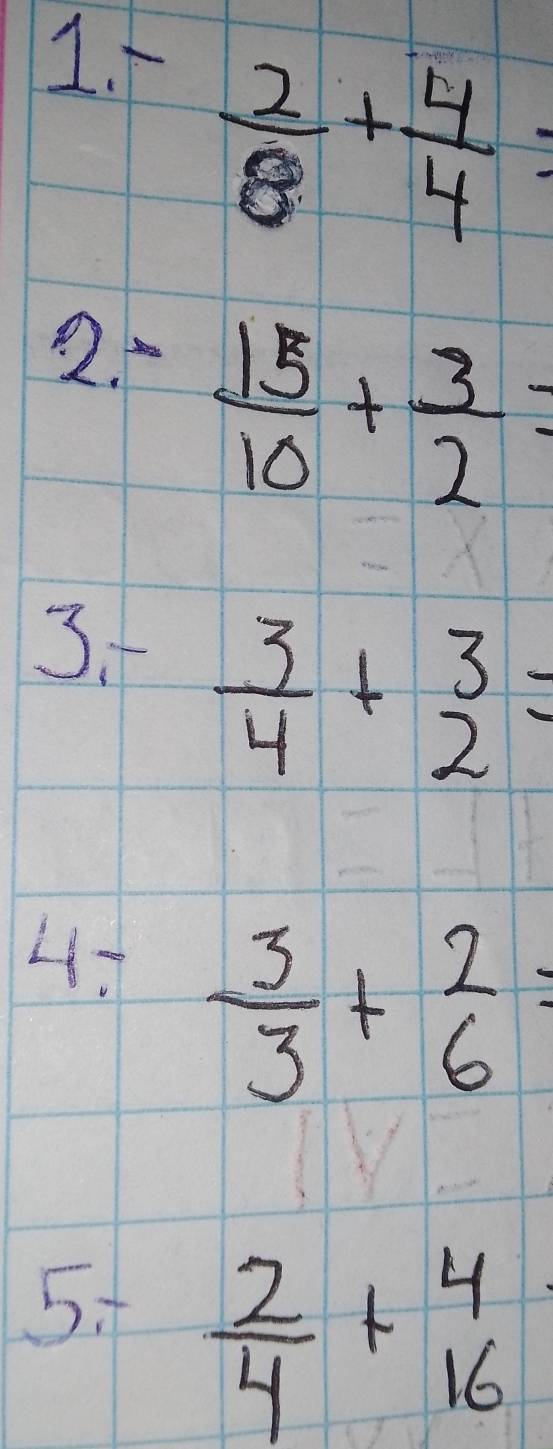 1.- 2/8 + 4/4 =
2.- 15/10 + 3/2 =
3.- 3/4 + 3/2 =
4.- 3/3 + 2/6 =
5.- 2/4 + 4/16